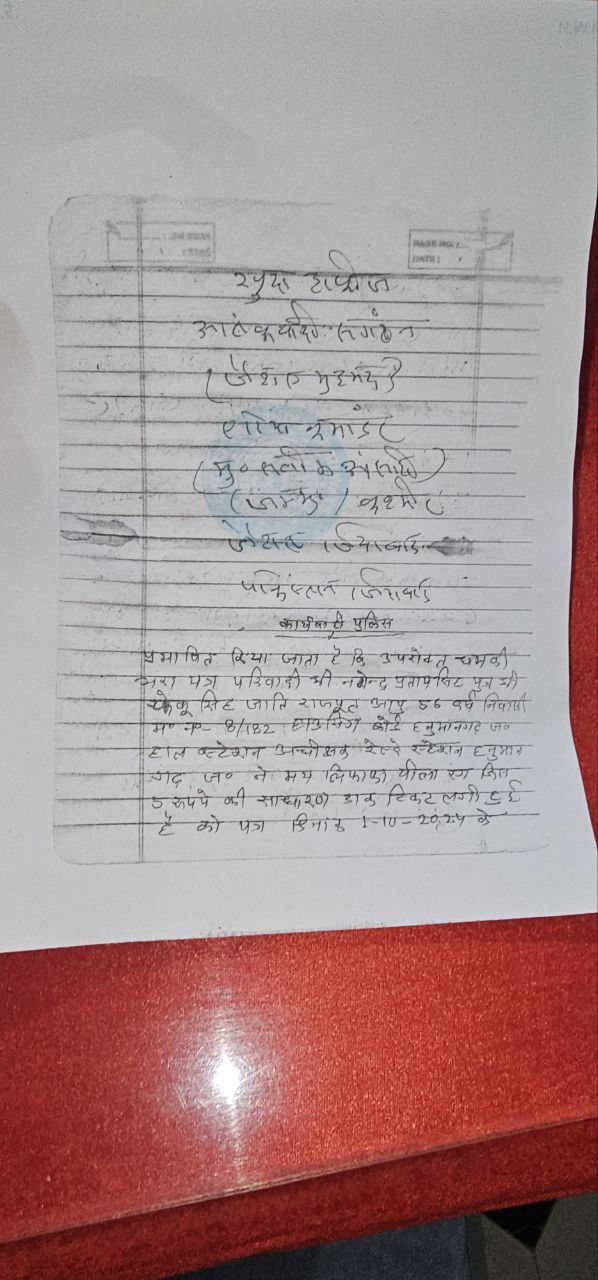 PAGE NO.:
DATE: /
खुदा हाफीज
आतंकवादी संगठन
(जैश ए मुहमद)
एरिया कमांडर
(मु० सलीम अंसारी)
(जम्मु) कश्मीर
जिंदाबाद
पाकिस्तान जिंदाबाद
कार्यवाही पुलिस
प्रमाणित किया जाता है कि उपरोक्त धमकी
भरा पत्र परिवादी श्री नगेन्द्र प्रतापसिंह पुत्र श्री
सिंह जाति राजपूत आयु 56 वर्ष निवासी
म० न०- 8/182 हाउसिंग बोर्ड हनुमानगढ ज०
हाल स्टेशन अधीक्षक रेल्वे स्टेशन हनुमान
गढ ज० ने मय लिफाफा पीला रंग जिस
5 रूपये की साधारण डाक टिकट लगी हुई
है को पत्र दिनांक 1-10-2024 के